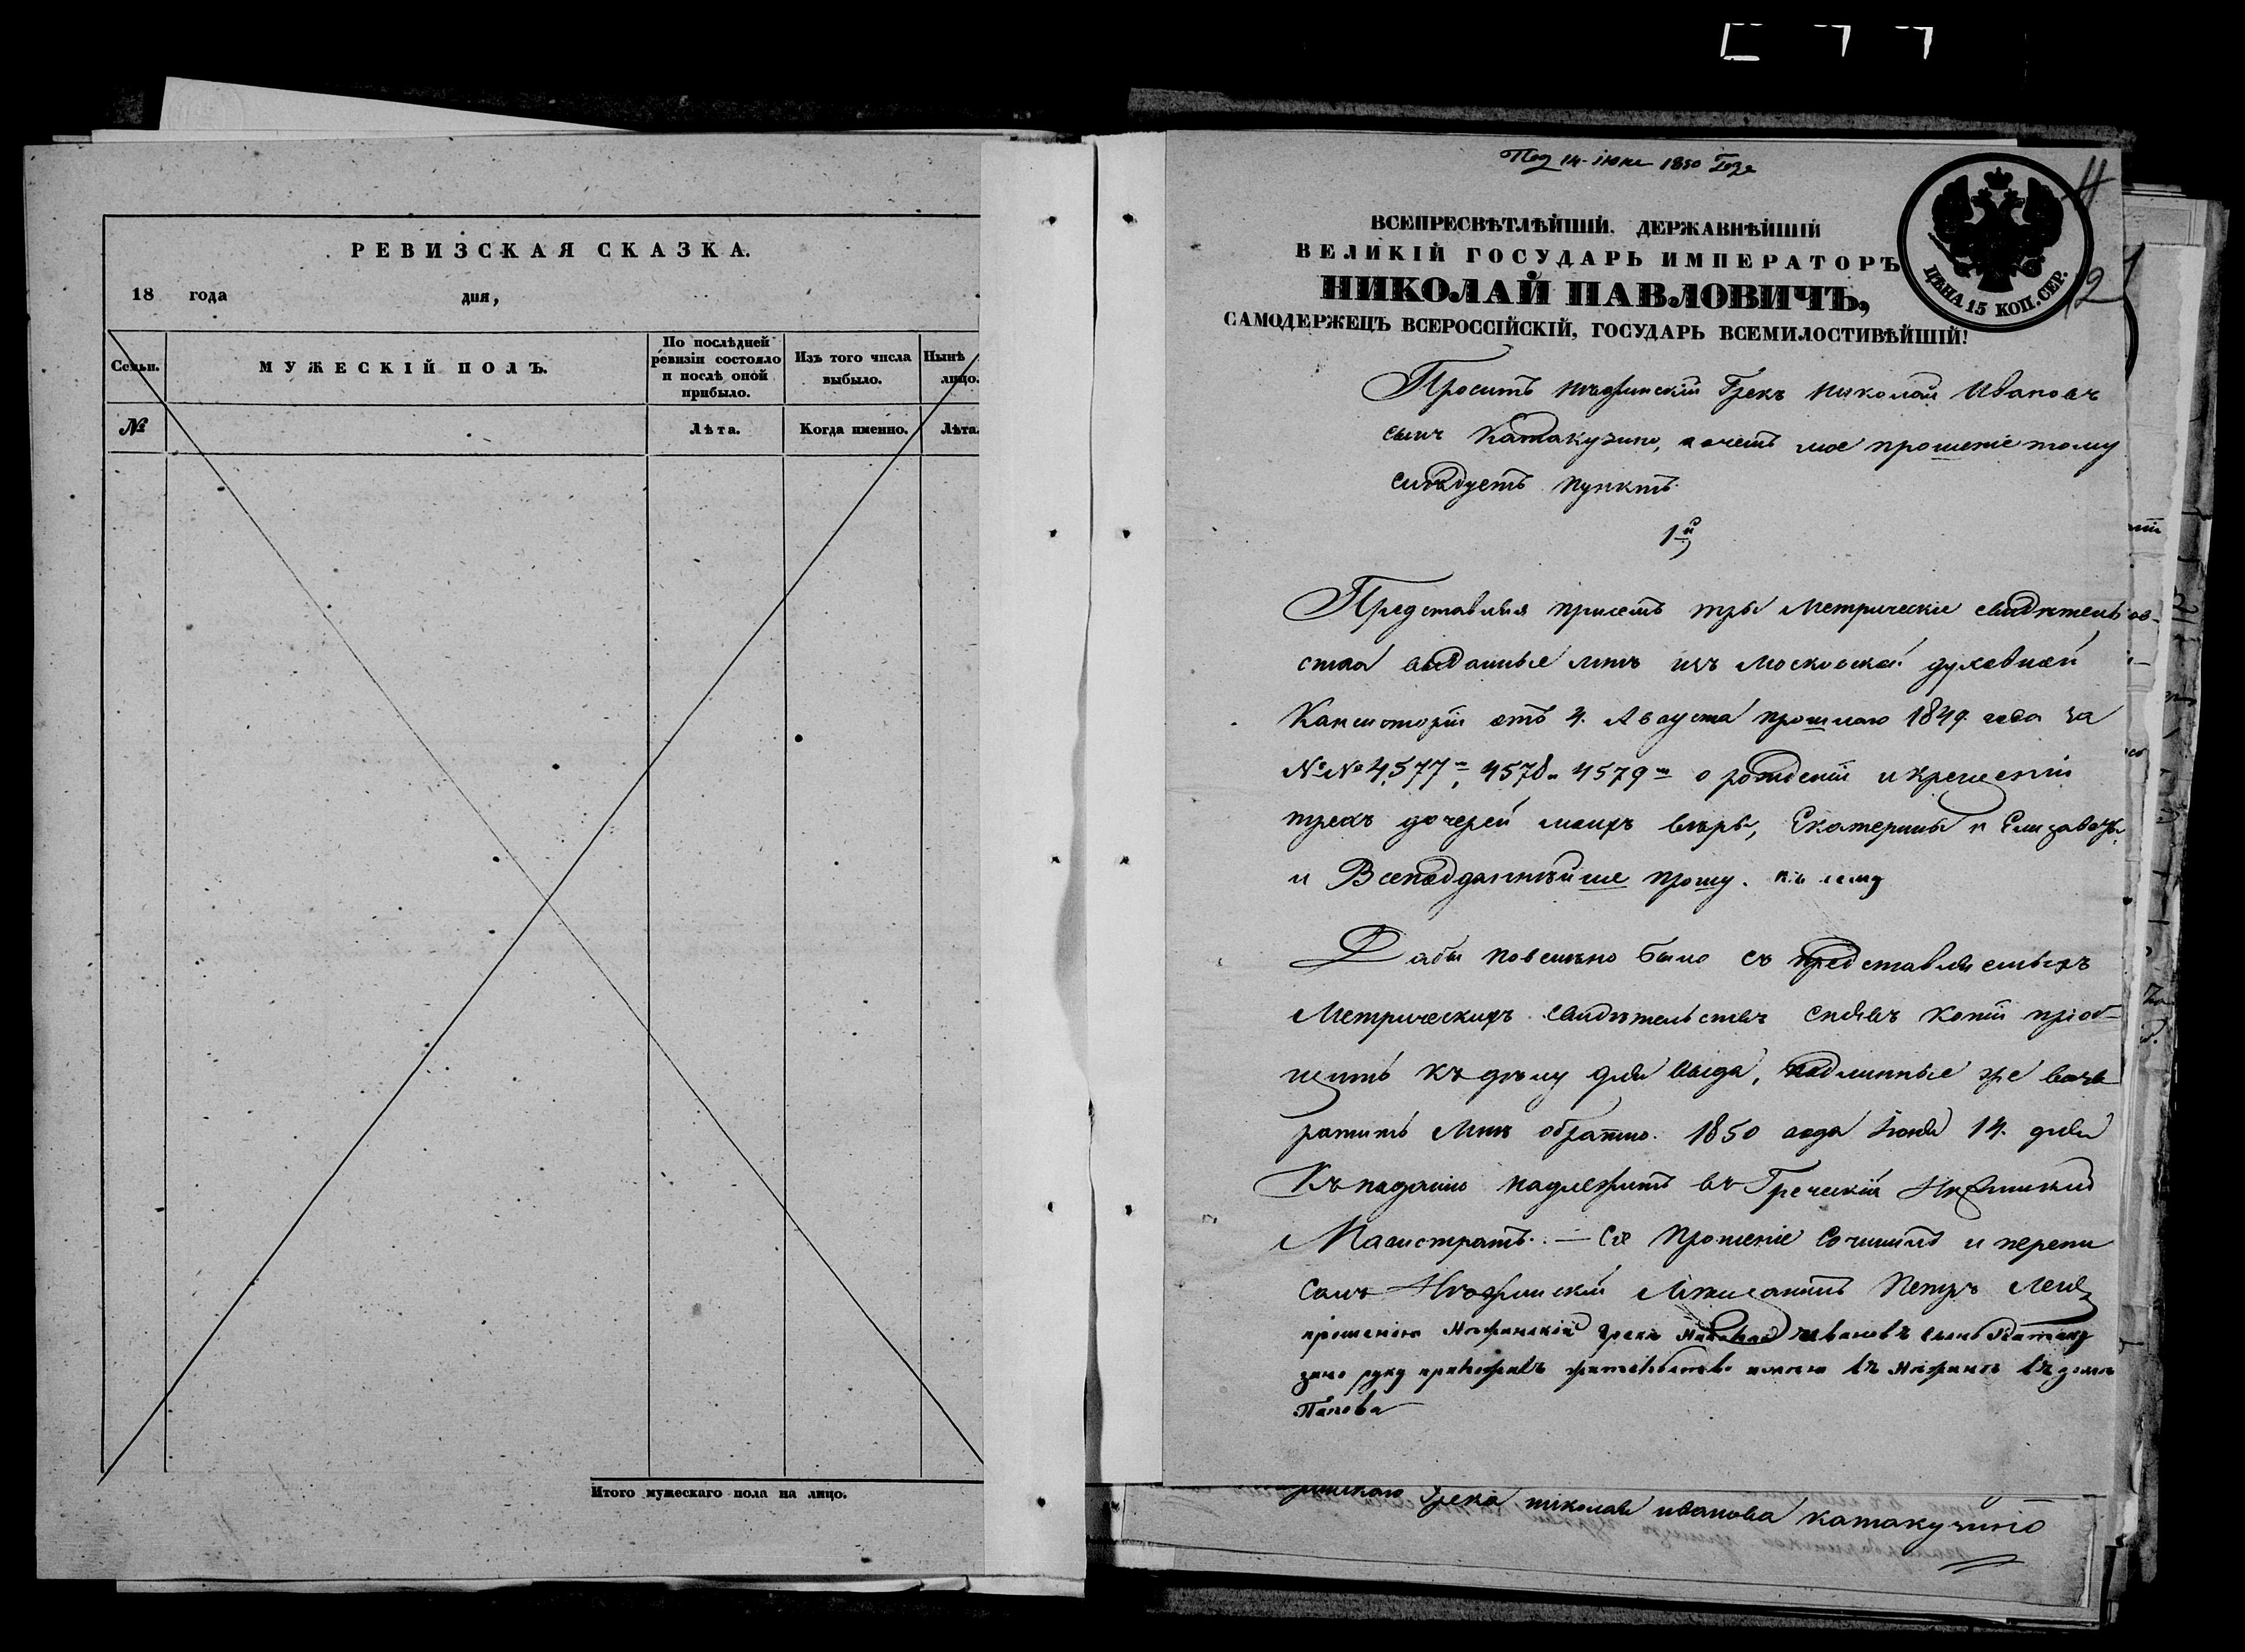 РЕВИЗСКАЯ СКАЗКА.
18 года дня,
Семьи. МУЖЕСКІЙ ПОЛЪ. По послѣдней ревизіи состояло и послѣ оной прибыло. Изъ того числа выбыло. Нынѣ лицо.
№ Лѣта. Когда именно. Лѣта.
Итого мужескаго пола на лицо.
Под 14 іюня 1850 Года
ВСЕПРЕСВѢТЛѢЙШІЙ, ДЕРЖАВНѢЙШІЙ
ВЕЛИКІЙ ГОСУДАРЬ ИМПЕРАТОРЪ
НИКОЛАЙ ПАВЛОВИЧЪ,
САМОДЕРЖЕЦЪ ВСЕРОССІЙСКІЙ, ГОСУДАРЬ ВСЕМИЛОСТИВѢЙШІЙ!
ЦѢНА 15 КОП. СЕР.
12
Проситъ нѣжинскій Грекъ Николай Ивановъ
сынъ Катакузино, а очемъ мое прошеніе тому
слѣдуетъ пунктъ
1й
Представляя присемъ три Метрическіе свидѣтель
ства выданные мнѣ изъ Московской духовной
Консисторіи отъ 4. Августа прошлаго 1849. года за
№№ 4,577, 4578 4579 о рожденіи и крещеніи
трехъ дочерей моихъ вѣры, Екатерины и Елизаветы
и Всеподданнѣйше прошу. къ сему
Дабы повелѣно было съ представляемыхъ
Метрическихъ свидѣтельствъ снявъ копіи пріоб
щить къ дѣлу для вида, подлинные же возв
ратить Мнѣ обратно. 1850 года Іюня 14. дня
Къ поданію надлежитъ въ Греческій Нѣжинскій
Магистратъ. — Сіе Прошеніе Сочинилъ и перепи
салъ Нѣжинскій Мѣщанинъ Петръ
прошенію Нѣжинскій грекъ Николай Ивановъ сынъ Катаку
зино руку приложилъ жительство имѣю въ Нѣжинѣ въ домѣ
Попова
Грека николая иванова катакузино